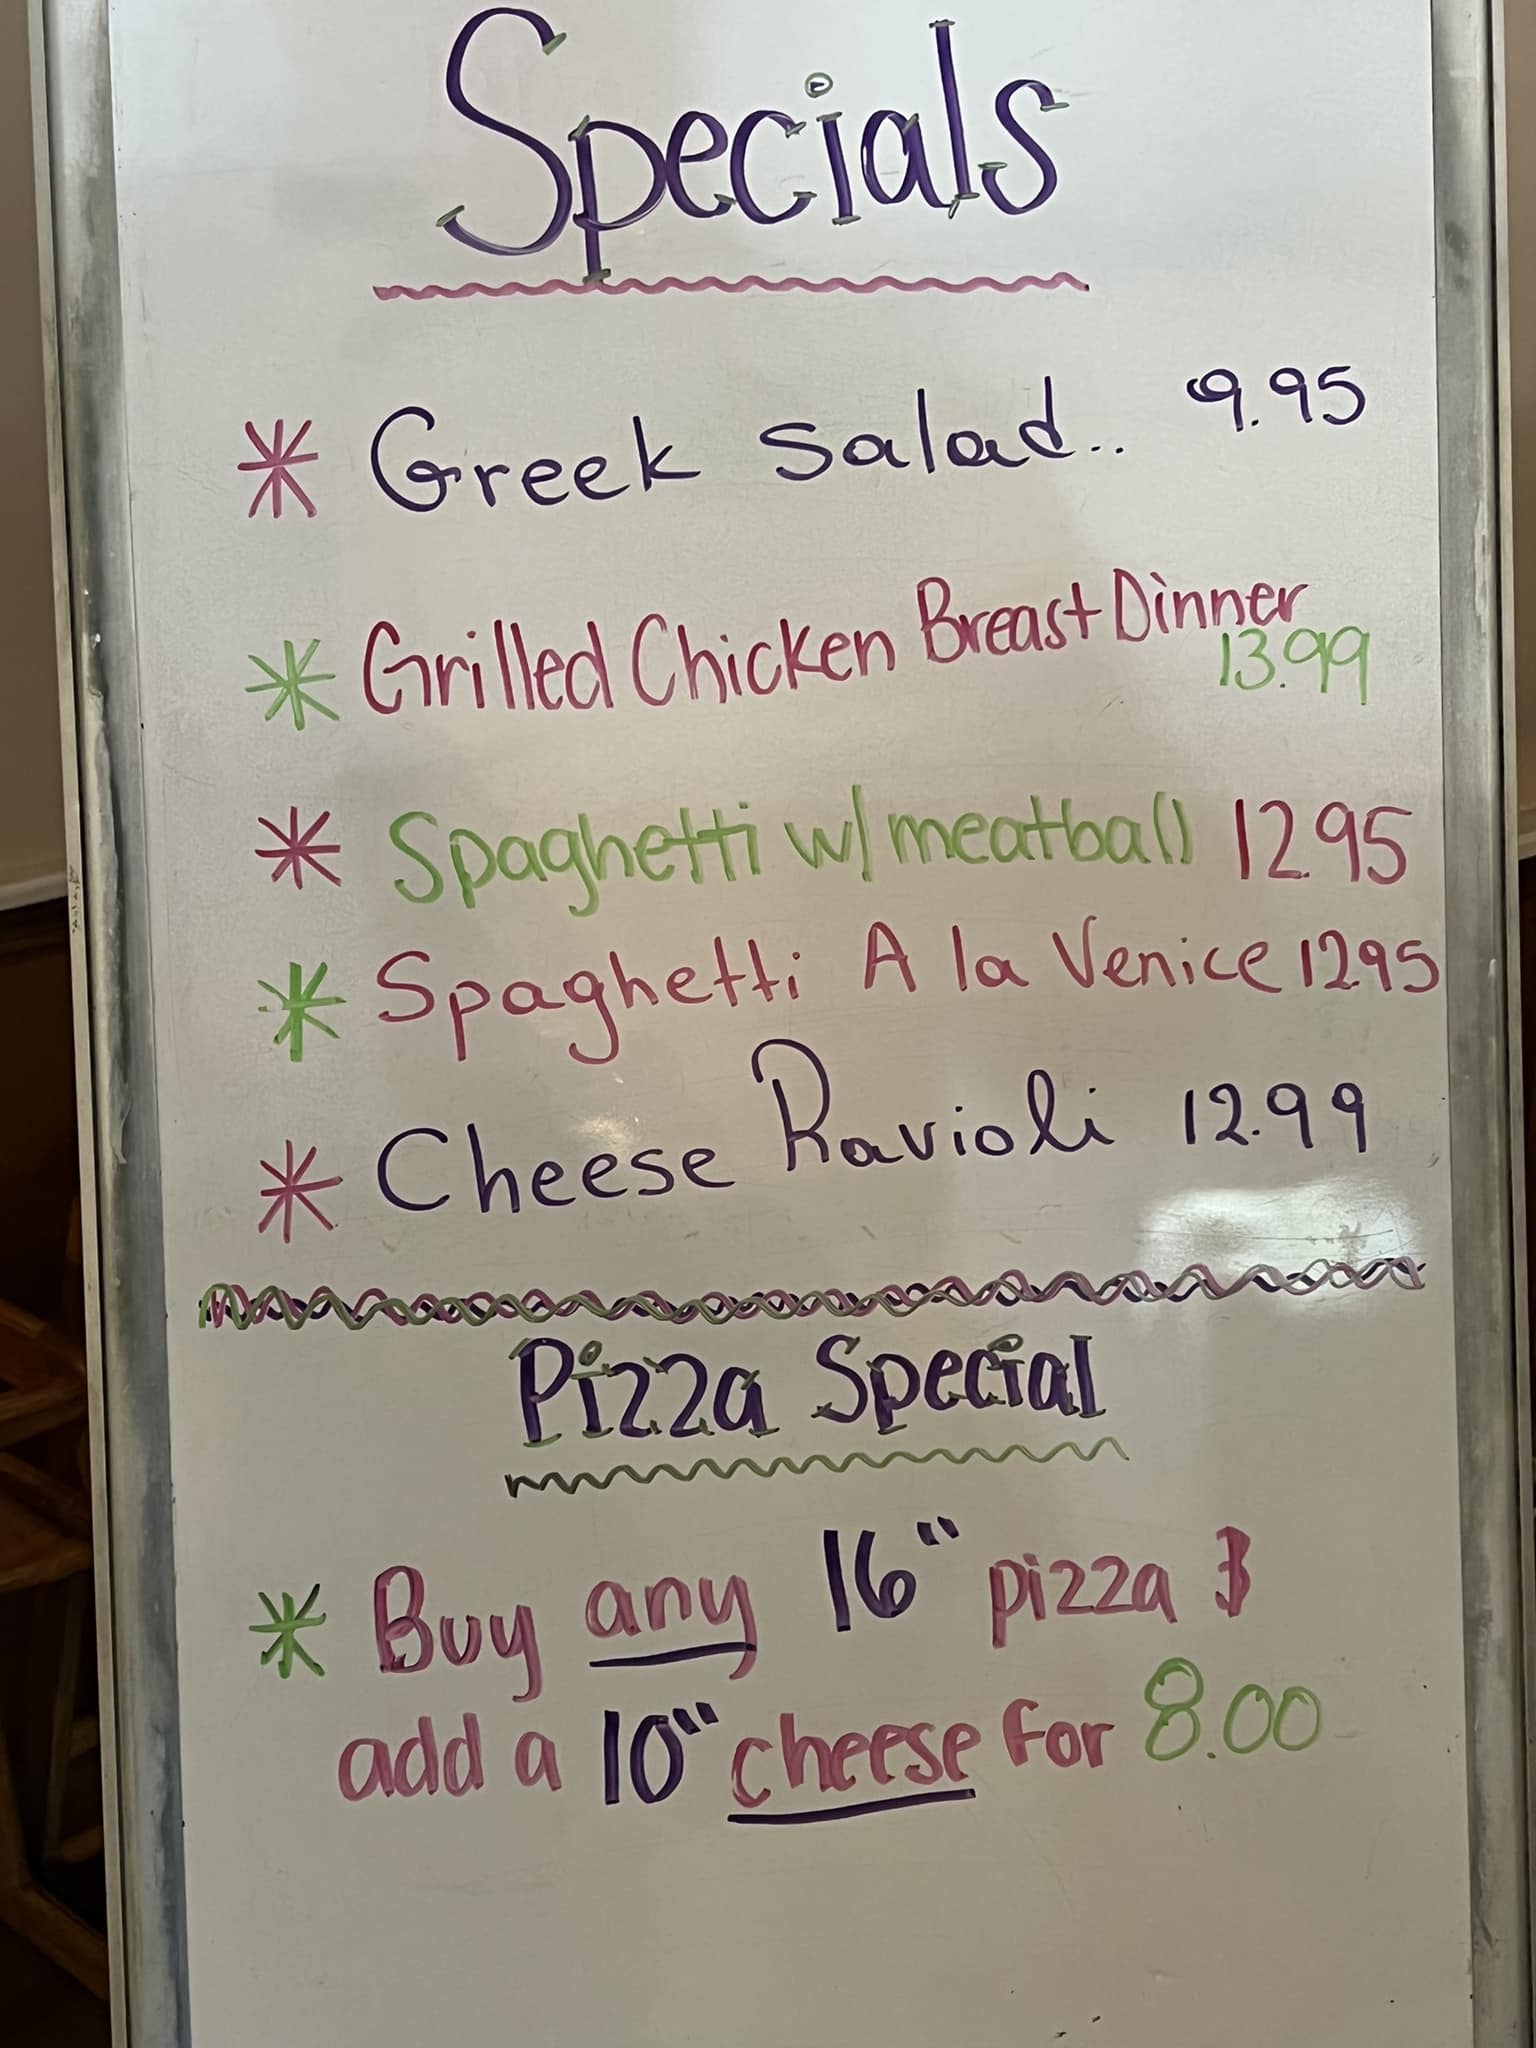 Specials
* Greek Salad.. 9.95
* Grilled Chicken Breast Dinner
13.99
* Spaghetti w/ meatball 12.95
* Spaghetti A la Venice 12.95
* Cheese Ravioli 12.99
Pizza Special
* Buy any 16" pizza &
add a 10" cheese for 8.00